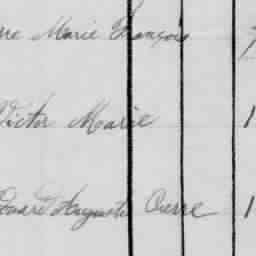 rre Marie François 7
Victor Marie 1
douard Auguste Pierre 1